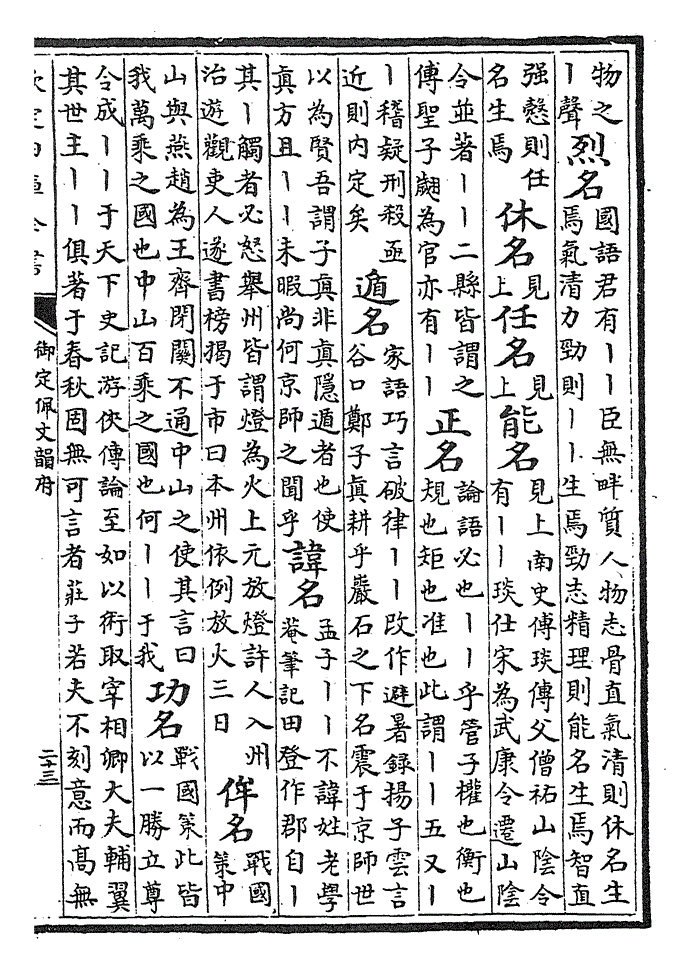 物之
丨聲
烈名
國語君有丨丨臣無畔質人物志骨直氣清則休名生
焉氣清力勁則丨丨生焉勁志精理則能名生焉智直
强愨則任
名生焉
休名
見
上
任名
見
上
能名
見上南史傅琰傳父僧祐山陰令
有丨丨琰仕宋為武康令遷山陰
令並著丨丨二縣皆謂之
傅聖子翽為官亦有丨丨
正名
論語必也丨丨乎管子權也衡也
規也矩也准也此謂丨丨五又丨
丨稽疑刑殺亟
近則内定矣
遁名
家語巧言破律丨丨改作避暑錄揚子雲言
谷口鄭子真耕乎巖石之下名震于京師世
以為賢吾謂子真非真隱遁者也使
真方且丨丨未暇尚何京師之聞乎
諱名
孟子丨丨不諱姓老學
菴筆記田登作郡自丨
其丨觸者必怒舉州皆謂燈為火上元放燈許人入州
治遊觀吏人遂書榜揭于市曰本州依例放火三日
侔名
戰國
策中
山與燕趙為王齊閉關不通中山之使其言曰
我萬乘之國也中山百乘之國也何丨丨于我
功名
戰國策此皆
以一勝立尊
令成丨丨于天下史記游俠傳論至如以術取宰相卿大夫輔翼
其世主丨丨俱著于春秋固無可言者莊子若夫不刻意而髙無
欽定四庫全書
御定佩文韻府
二十三